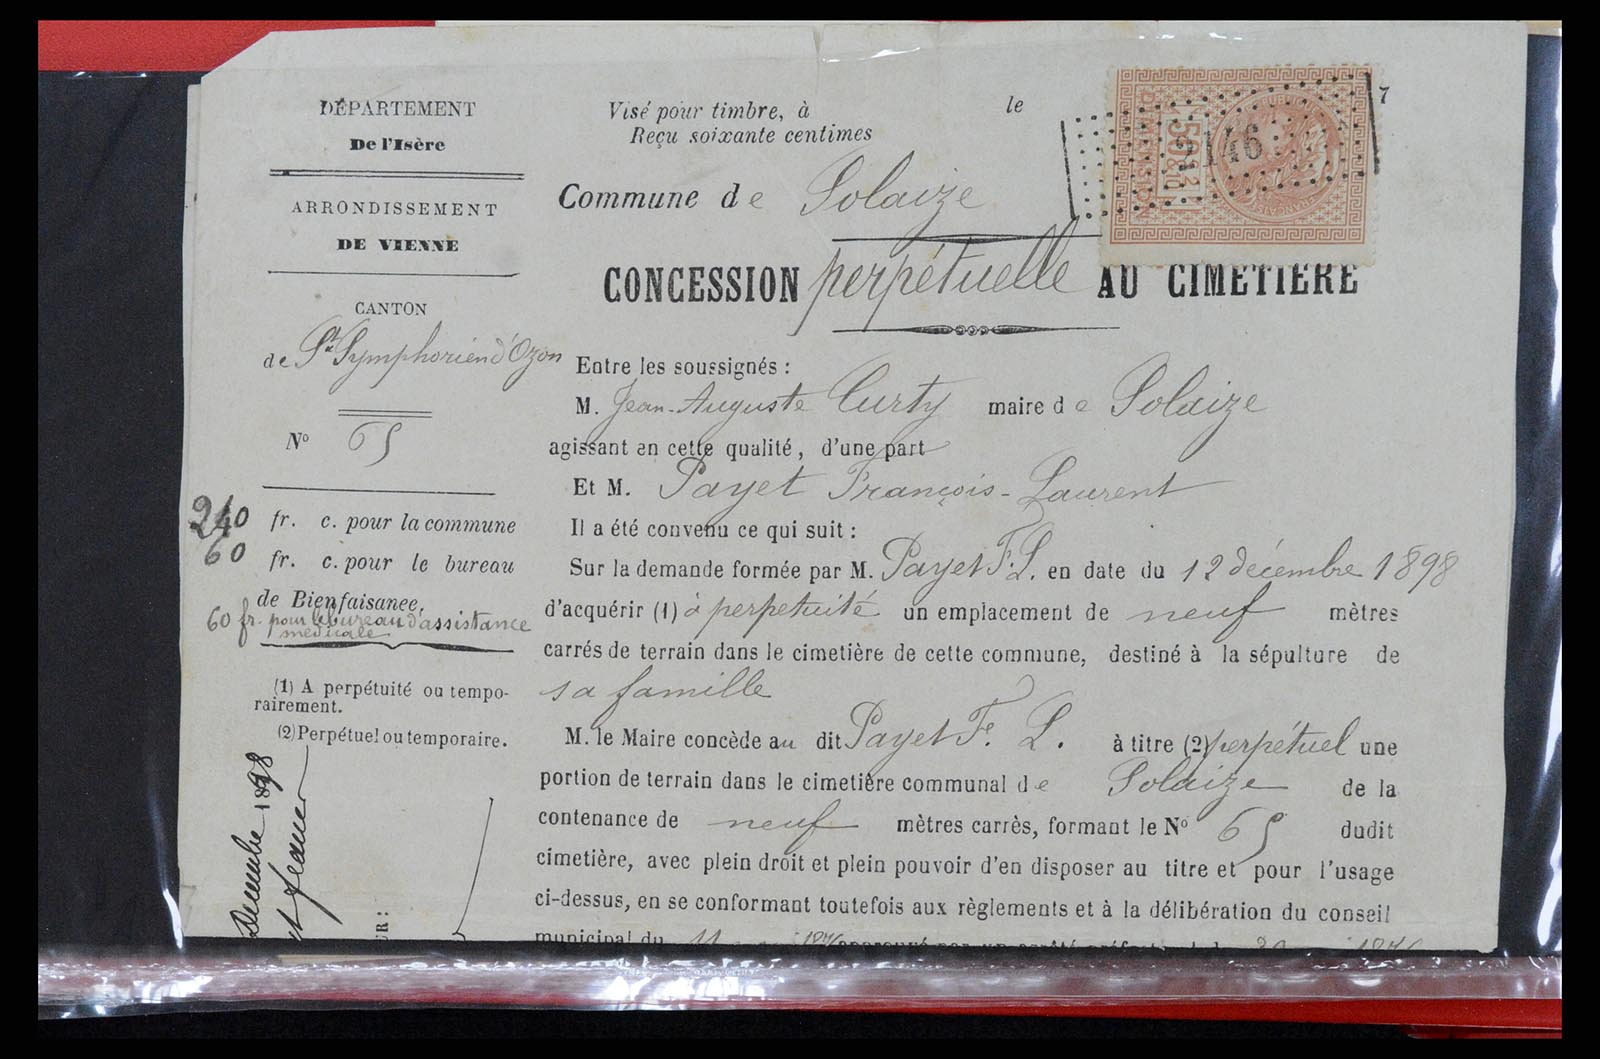 DÉPARTEMENT
De l'Isère
ARRONDISSEMENT
DE VIENNE
CANTON
de St Symphorien d'Ozon
No 65
240 fr. c. pour la commune
60 fr. c. pour le bureau
de Bienfaisanee,
60 fr. pour le bureau d'assistance
médicale
(1) A perpétuité ou tempo-
rairement.
(2) Perpétuel ou temporaire.
Décembre 1898
UR:
Visé pour timbre, à le 7
Reçu soixante centimes
2146
Commune de Solaize
CONCESSION perpétuelle AU CIMETIÈRE
Entre les soussignés :
M. Jean-Auguste Curty maire de Solaize
agissant en cette qualité, d'une part
Et M. Payet François-Laurent
Il a été convenu ce qui suit :
Sur la demande formée par M. Payet F. L. en date du 12 décembre 1898
d'acquérir (1) à perpétuité un emplacement de neuf mètres
carrés de terrain dans le cimetière de cette commune, destiné à la sépulture de
sa famille
M. le Maire concède au dit Payet F. L. à titre (2) perpétuel une
portion de terrain dans le cimetière communal de Solaize de la
contenance de neuf mètres carrès, formant le No 65 dudit
cimetière, avec plein droit et plein pouvoir d'en disposer au titre et pour l'usage
ci-dessus, en se conformant toutefois aux règlements et à la délibération du conseil
municipal du